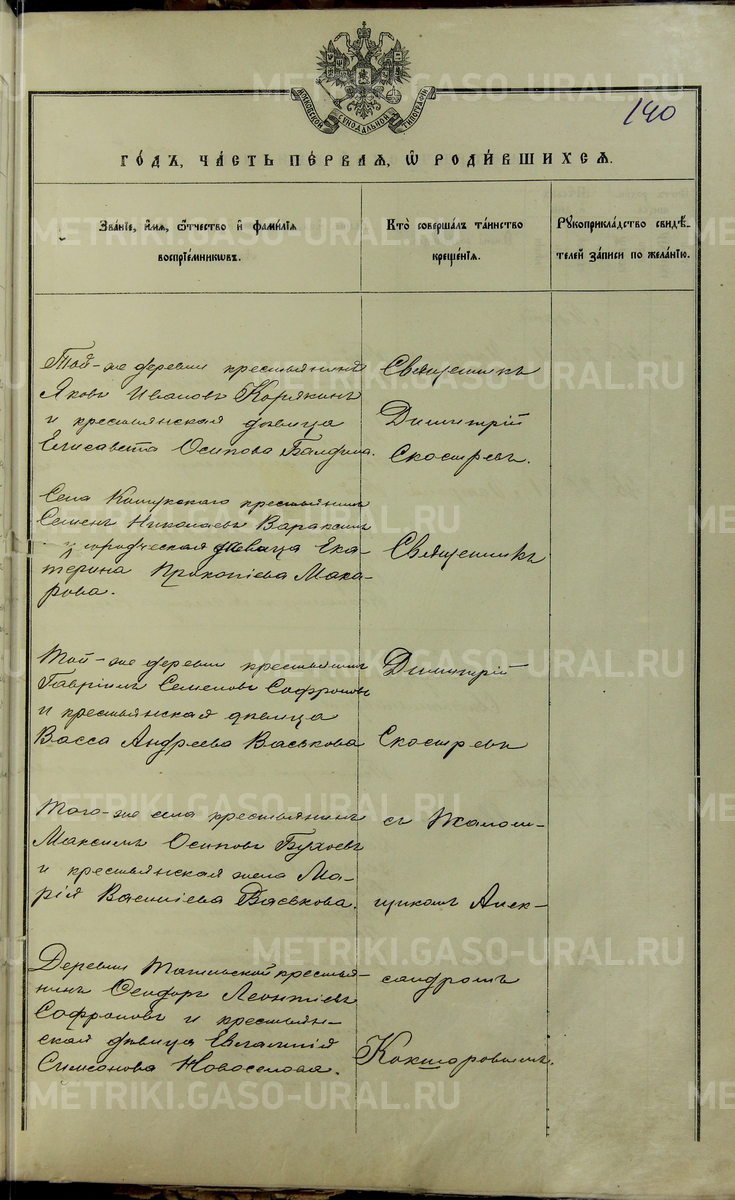 МОСКОВСКОЙ СѴНОДАЛЬНОЙ ТИПОГРАФІИ
METRIKI.GASO-URAL.RU
140
ГО́ДЪ, ЧА́СТЬ ПЕ́РВАЯ, Ѡ҆ РОДИ́ВШИХСѦ.
Зва́нїе, и҆́мѧ, ѻ҆́тчество и҆ фами́лїѧ
воспрїе́мникѡвъ.
Кто̀ соверша́лъ та́инство
креще́нїѧ.
Рꙋкоприкла́дство свидѣ́-
телей за́писи по жела́нїю.
Той-же деревни крестьянинъ
Яковъ Ивановъ Корякинъ
и крестьянская дѣвица
Елисавета Осипова
Священникъ
Димитрій
Скостревъ.
Села крестьянинъ
Семенъ Николаевъ Вараксинъ
дѣвица Ека-
терина Прокопіева Мака-
рова.
Священникъ
Той-же деревни крестьянинъ
Гавріилъ Семеновъ Софроновъ
и крестьянская дѣвица
Васса Андреева Васькова
Димитрій
Скостревъ
Того-же села крестьянинъ
Максимъ Осиповъ
и крестьянская жена Ма-
рія Василіева Васькова.
съ Псалом-
щикомъ Алек-
Деревни крестья-
нинъ Ѳеодоръ Леонтіевъ
Софроновъ и крестьян-
ская дѣвица Евлампія
Симеонова Новоселова.
сандромъ
Кокшаровымъ.